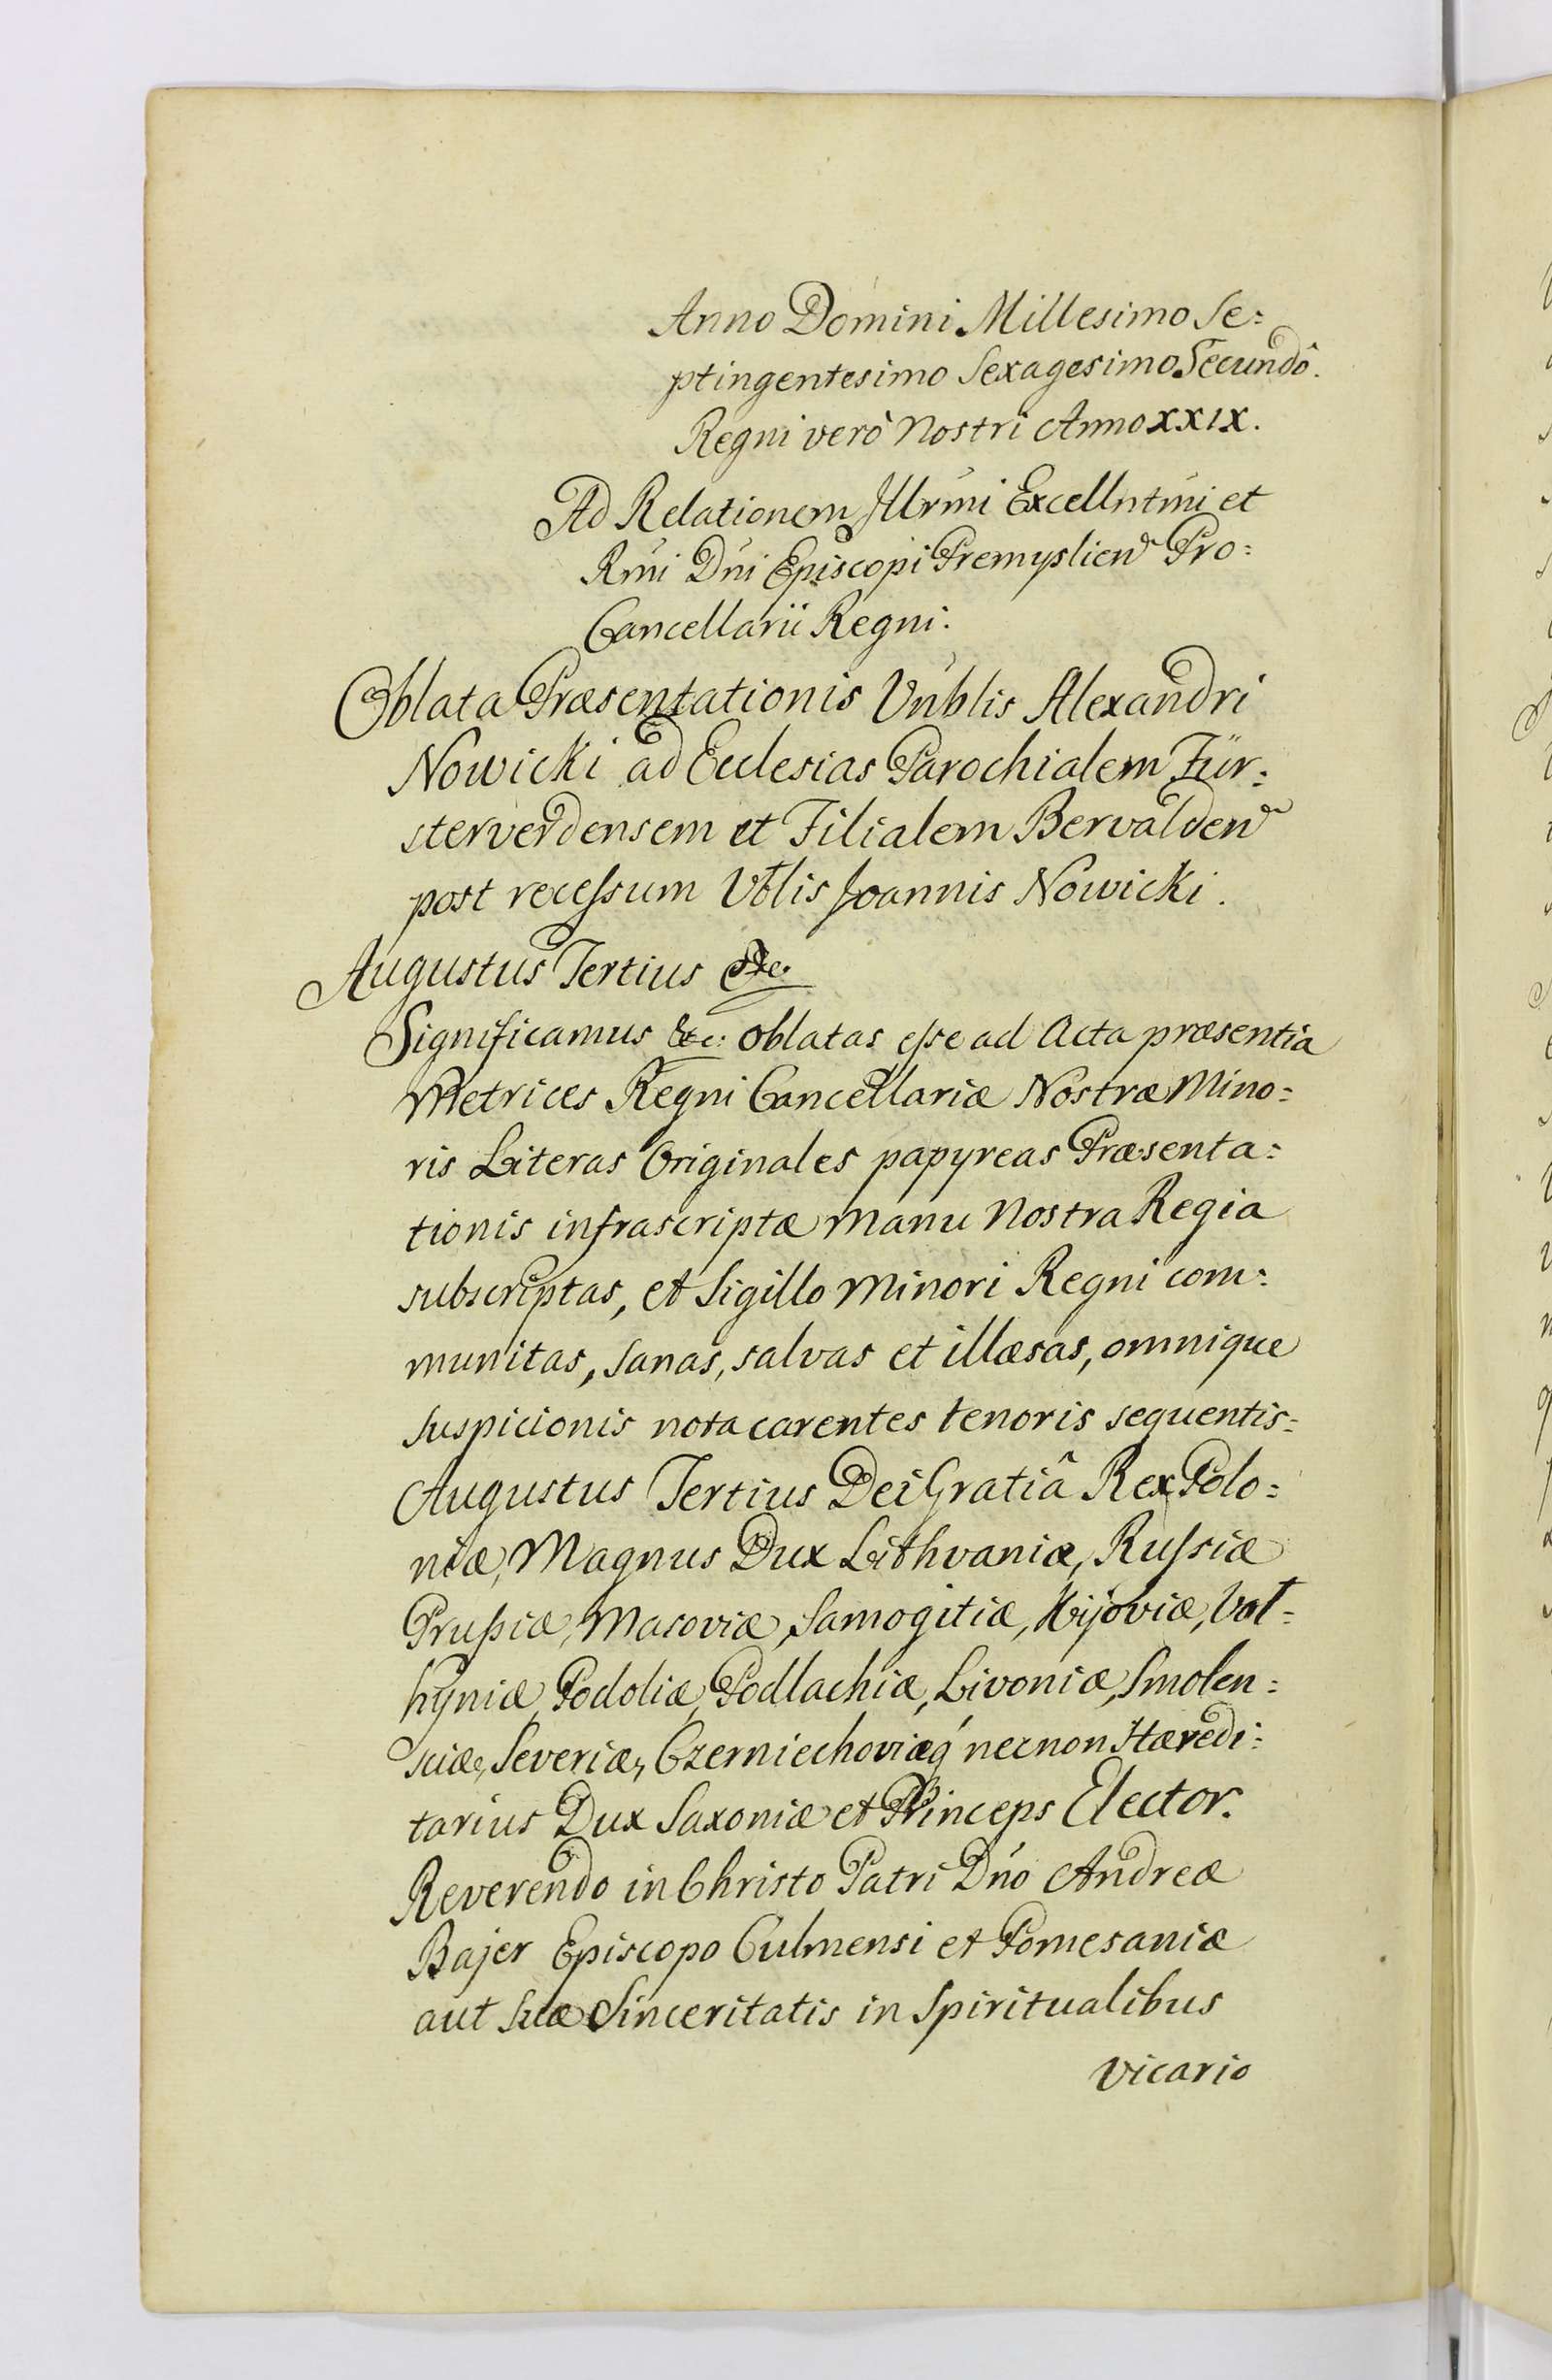 Anno Domini Millesimo Se:
ptingentesimo Sexagesimo Secundô.
Regni verò Nostri Anno XXIX.
Ad Relationem Illrm̃i Excellntm̃i et
Rm̃i Dñi Episcopi Premyslien̄ Pro:
Cancellarii Regni.
Oblata Præsentationis Vnb̃lis Alexandri
Nowicki ad Ecclesias Parochialem Für:
sterverdensem et Filialem Bervalden̄
post recessum Vb̃lis Joannis Nowicki.
Augustus Tertius &c.
Significamus &c: Oblatas esse ad Acta præsentia
Metrices Regni Cancellariæ Nostræ Mino:
ris Literas Originales papyreas Præsenta:
tionis infrascriptæ Manu Nostra Regia
subscriptas, et Sigillo Minori Regni com:
munitas, sanas, salvas et illæsas, omnique
suspicionis nota carentes tenoris sequentis:
Augustus Tertius Dei Gratiâ Rex Polo:
niæ, Magnus Dux Lithvaniæ, Russiæ
Prussiæ, Masoviæ, Samogitiæ, Kijoviæ, Vol:
hyniæ, Podoliæ, Podlachiæ, Livoniæ, Smolen:
sciæ, Severiæ, Czerniechoviæq́ necnon Hæredi:
tarius Dux Saxoniæ et Princeps Elector.
Reverendo in Christo Patri Dño Andreæ
Bajer Episcopo Culmensi et Pomesaniæ
aut suæ Sinceritatis in Spiritualibus
Vicario